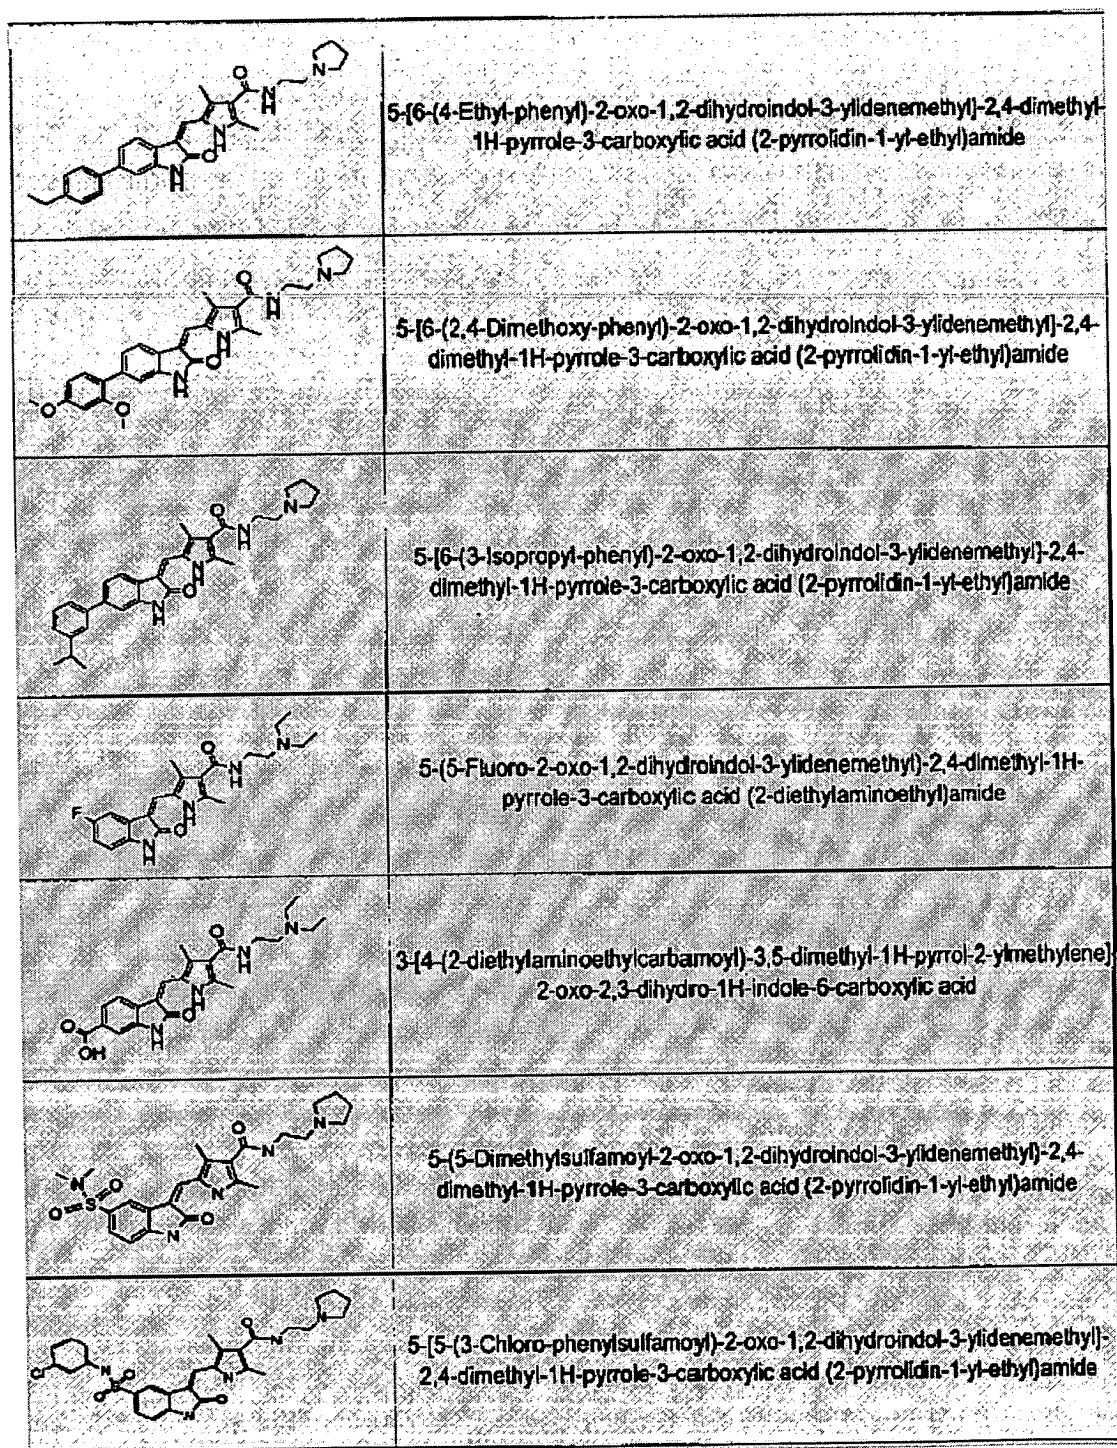 5-[6-(4-Ethyl-phenyl)-2-oxo-1,2-dihydroindol-3-ylidenemethyl]-2,4-dimethyl-
1H-pyrrole-3-carboxylic acid (2-pyrrolidin-1-yl-ethyl)amide
O
N
N
H
N
H
O
N
H
5-[6-(2,4-Dimethoxy-phenyl)-2-oxo-1,2-dihydroindol-3-ylidenemethyl]-2,4-
dimethyl-1H-pyrrole-3-carboxylic acid (2-pyrrolidin-1-yl-ethyl)amide
O
N
N
H
N
H
O
N
H
O
O
5-[6-(3-Isopropyl-phenyl)-2-oxo-1,2-dihydroindol-3-ylidenemethyl]-2,4-
dimethyl-1H-pyrrole-3-carboxylic acid (2-pyrrolidin-1-yl-ethyl)amide
O
N
N
H
N
H
O
N
H
5-(5-Fluoro-2-oxo-1,2-dihydroindol-3-ylidenemethyl)-2,4-dimethyl-1H-
pyrrole-3-carboxylic acid (2-diethylaminoethyl)amide
O
N
N
H
F
N
H
O
N
H
3-[4-(2-diethylaminoethylcarbamoyl)-3,5-dimethyl-1H-pyrrol-2-ylmethylene]-
2-oxo-2,3-dihydro-1H-indole-6-carboxylic acid
O
N
N
H
N
H
O
N
H
O
OH
5-(5-Dimethylsulfamoyl-2-oxo-1,2-dihydroindol-3-ylidenemethyl)-2,4-
dimethyl-1H-pyrrole-3-carboxylic acid (2-pyrrolidin-1-yl-ethyl)amide
O
N
N
N
O
S
O
N
O
N
5-[5-(3-Chloro-phenylsulfamoyl)-2-oxo-1,2-dihydroindol-3-ylidenemethyl]-
2,4-dimethyl-1H-pyrrole-3-carboxylic acid (2-pyrrolidin-1-yl-ethyl)amide
O
N
N
N
O
O
N
O
N